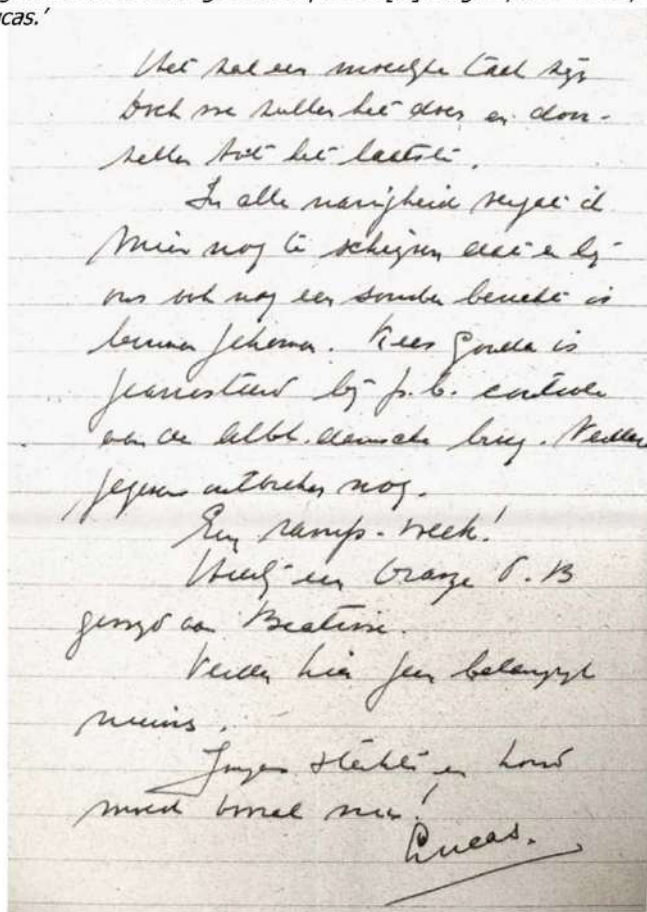 ucas.'
Het zal een moeilijke taak zijn
doch we zullen het doen en door-
zetten tot het laatste.
In alle narigheid vergat ik
nog te schrijven dat er bij
ons ook nog een bericht is
binnen gekomen. Kees Gouda is
gearresteerd bij p.b. controle
van de brug. Verdere
gegevens ontbreken nog.
Een ramp-week!
een Oranje
aan
Verder hier geen belangrijk
nieuws.
Jongen sterkte en houd
moed vooral nu!
Lucas.